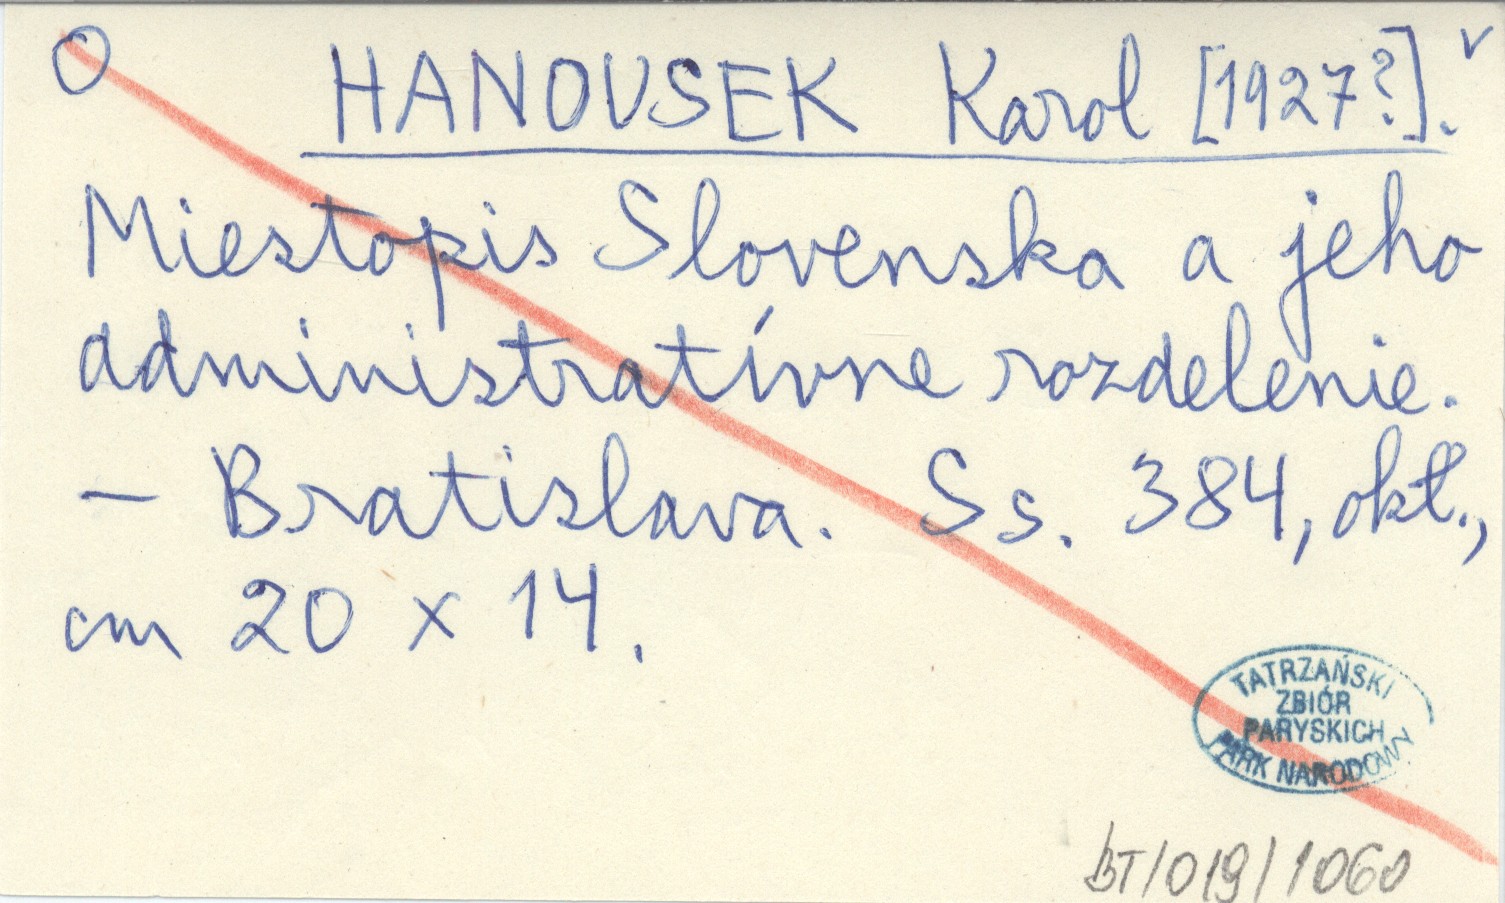 O HANOUSEK Karol [1927?]. v
Miestopis Slovenska a jeho
administratívne rozdelenie.
— Bratislava. Ss. 384, okt.,
cm 20 x 14.
TATRZAŃSKI
ZBIÓR
PARYSKICH
PARK NARODOWY
BT/019/1060